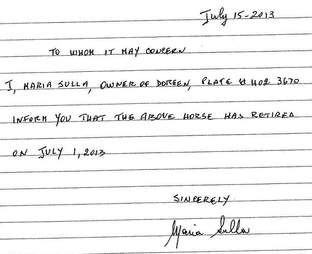 July 15-2013
TO WHOM IT MAY CONCERN
I, MARIA SULLA, OWNER OF DOREEN, PLATE # H02 3670
INFORM YOU THAT THE ABOVE HORSE HAS RETIRED
ON JULY 1, 2013
SINCERELY
Maria Sulla